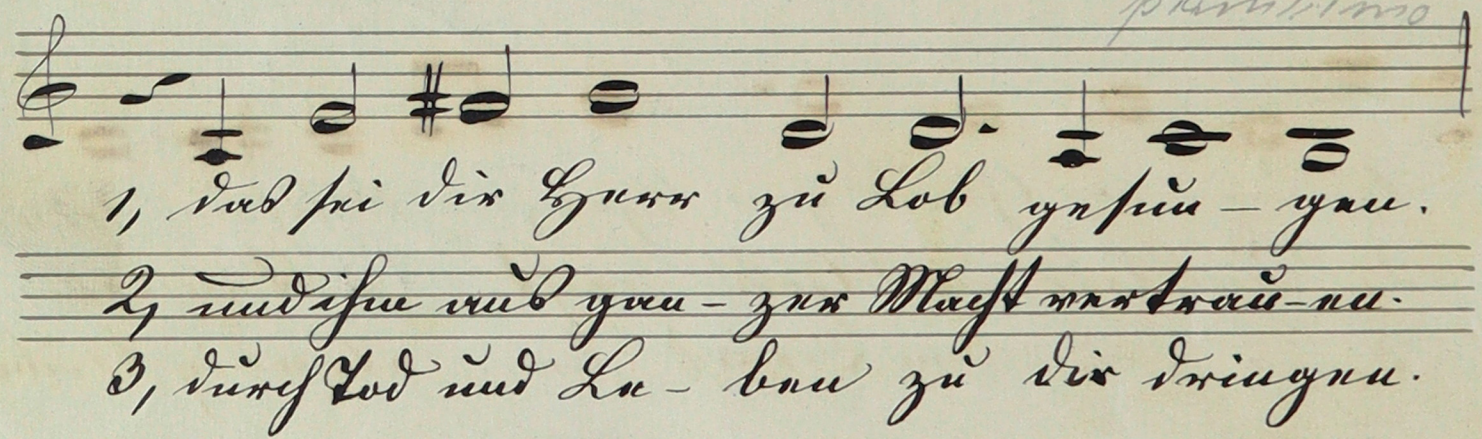 1, das sei dir Herr zu Lob gesun – gen.
2, und ihm aus gan – zer Macht vertrau-en.
3, durch Tod und Le – ben zu dir dringen.